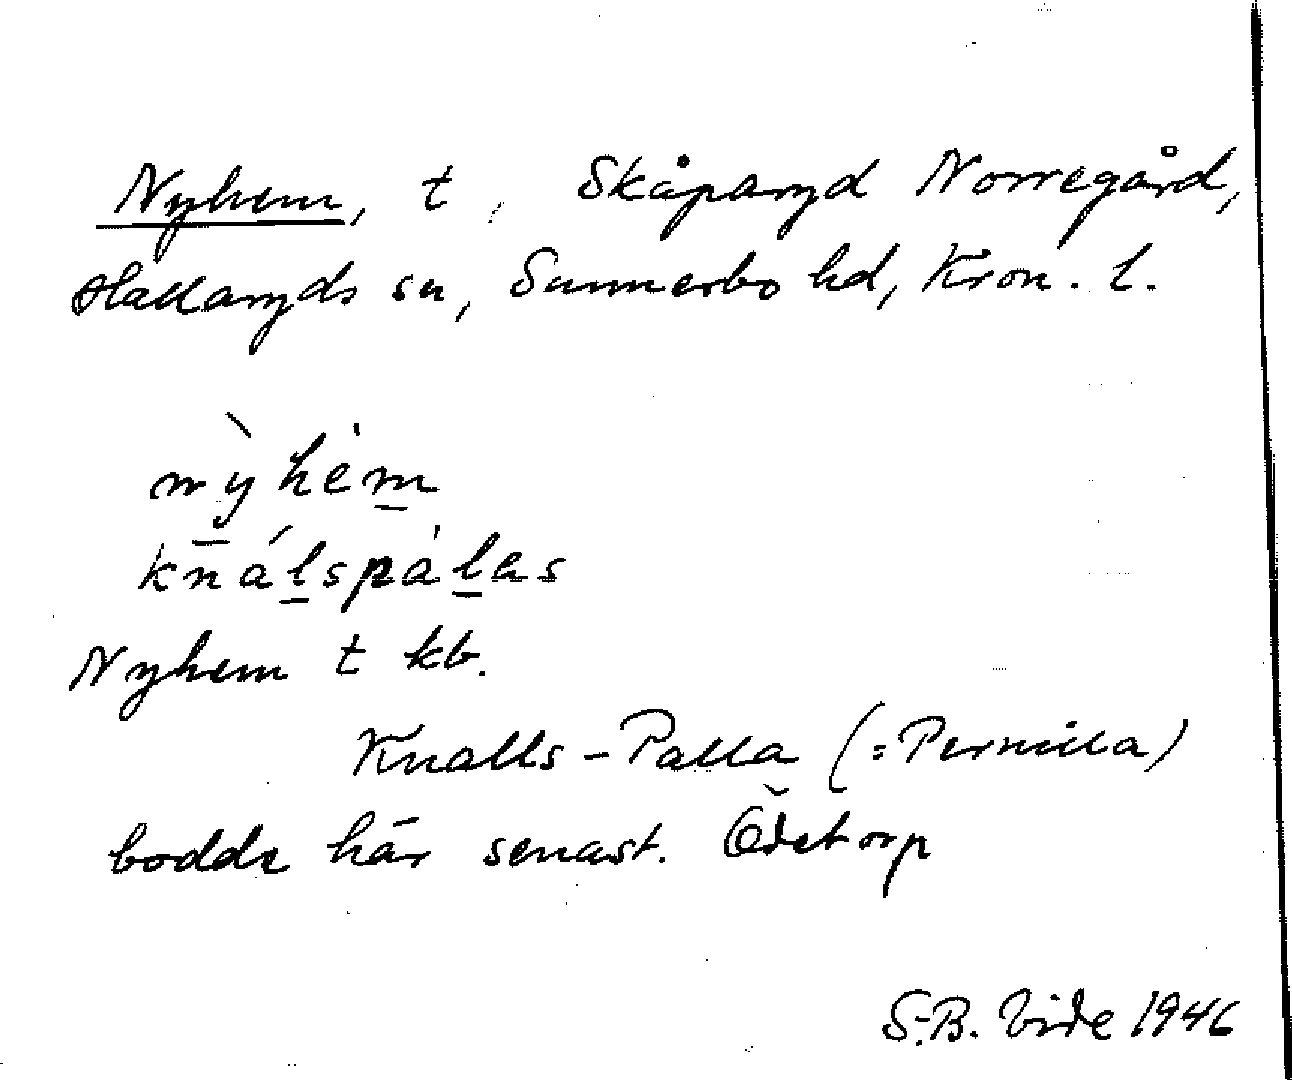 Nyhem, t, Skåparyd Norregård,
Hallaryds sn, Sunnerbo hd, Kron. l.
nỳhèm
knálspàlas
Nyhem t kb.
Knalls-Palla (= Pernilla)
bodde här senast. Ödetorp
S.-B. Vide 1946